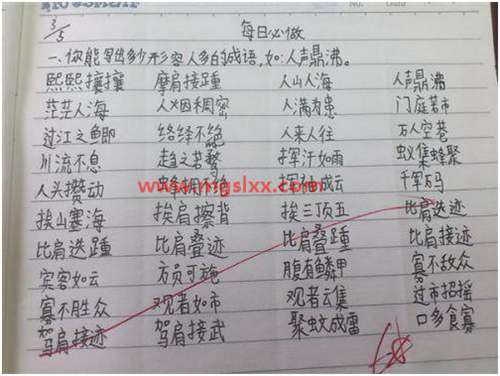 3/5 每日必做
一、你能写出多少形容人多的成语,如:人声鼎沸。
熙熙攘攘 摩肩接踵 人山人海 人声鼎沸
茫茫人海 人烟稠密 人满为患 门庭若市
过江之鲫 络绎不绝 人来人往 万人空巷
川流不息 趋之若鹜 挥汗如雨 蚁集蜂聚
人头攒动 蜂拥不绝 挥袖成云 千军万马
www.mgslxx.com
挨山塞海 挨肩擦背 挨三顶五 比肩迭迹
比肩迭踵 比肩叠迹 比肩叠踵 比肩接迹
宾客如云 方员可施 腹有鳞甲 寡不敌众
寡不胜众 观者如市 观者云集 过市招摇
驾肩接迹 驾肩接武 聚蚊成雷 口多食寡